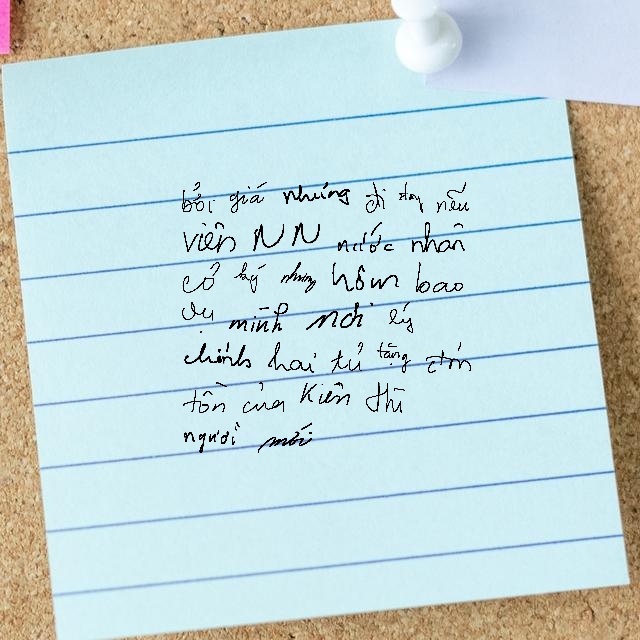 bởi giá nhưng đi nếu
viên NN nước nhân
cổ ký nhưng hôm bao
dụ mình nơi lý
chính hai tử tặng đến
tồn của Kiên thì
người mới